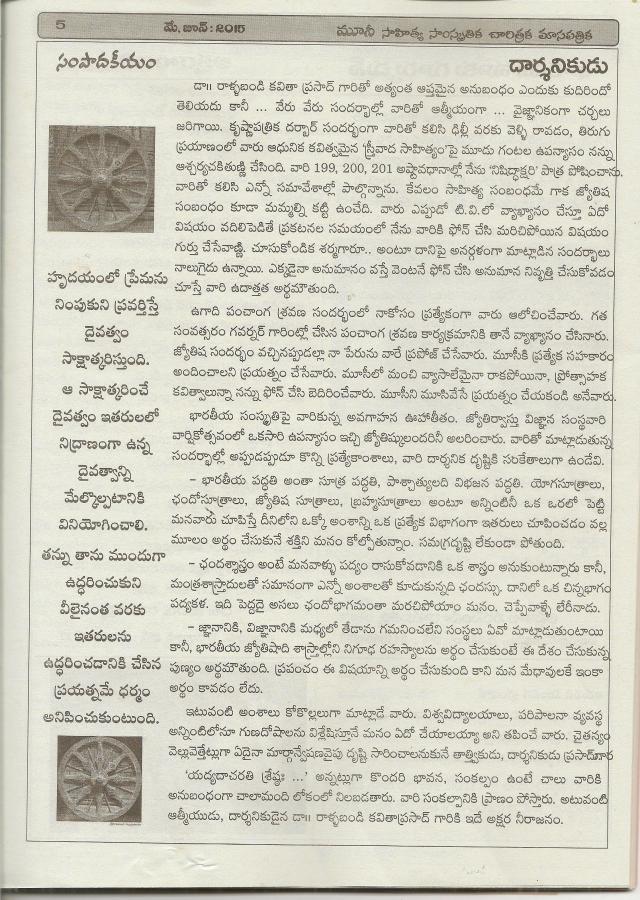 5
మే, జూన్ : 2015
మూసీ సాహిత్య సాంస్కృతిక చారిత్రక మాసపత్రిక
సంపాదకీయం
దార్శనికుడు
హృదయంలో ప్రేమను
నింపుకుని ప్రవర్తిస్తే
దైవత్వం
సాక్షాత్కరిస్తుంది.
ఆ సాక్షాత్కరించే
దైవత్వం ఇతరులలో
నిద్రాణంగా ఉన్న
దైవత్వాన్ని
మేల్కొల్పటానికి
వినియోగించాలి.
తన్ను తాను ముందుగా
ఉద్ధరించుకుని
వీలైనంత వరకు
ఇతరులను
ఉద్ధరించడానికి చేసిన
ప్రయత్నమే ధర్మం
అనిపించుకుంటుంది.
డా॥ రాళ్ళబండి కవితా ప్రసాద్ గారితో అత్యంత ఆప్తమైన అనుబంధం ఎందుకు కుదిరిందో
తెలియదు కానీ ... వేరు వేరు సందర్భాల్లో వారితో ఆత్మీయంగా ... వైజ్ఞానికంగా చర్చలు
జరిగాయి. కృష్ణాపత్రిక దర్బార్ సందర్భంగా వారితో కలిసి ఢిల్లీ వరకు వెళ్ళి రావడం, తిరుగు
ప్రయాణంలో వారు ఆధునిక కవిత్వమైన 'స్త్రీవాద సాహిత్యం'పై మూడు గంటల ఉపన్యాసం నన్ను
ఆశ్చర్యచకితుణ్ణి చేసింది. వారి 199, 200, 201 అష్టావధానాల్లో నేను 'నిషిద్ధాక్షరి' పాత్ర పోషించాను.
వారితో కలిసి ఎన్నో సమావేశాల్లో పాల్గొన్నాను. కేవలం సాహిత్య సంబంధమే గాక జ్యోతిష
సంబంధం కూడా మమ్మల్ని కట్టి ఉంచేది. వారు ఎప్పుడో టి.వి.లో వ్యాఖ్యానం చేస్తూ ఏదో
విషయం వదిలిపెడితే ప్రకటనల సమయంలో నేను వారికి ఫోన్ చేసి మరిచిపోయిన విషయం
గుర్తు చేసేవాణ్ణి. చూసుకోండిక శర్మగారూ.. అంటూ దానిపై అనర్గళంగా మాట్లాడిన సందర్భాలు
నాలుగైదు ఉన్నాయి. ఎక్కడైనా అనుమానం వస్తే వెంటనే ఫోన్ చేసి అనుమాన నివృత్తి చేసుకోవడం
చూస్తే వారి ఉదాత్తత అర్థమౌతుంది.
ఉగాది పంచాంగ శ్రవణ సందర్భంలో నాకోసం ప్రత్యేకంగా వారు ఆలోచించేవారు. గత
సంవత్సరం గవర్నర్ గారింట్లో చేసిన పంచాంగ శ్రవణ కార్యక్రమానికి తానే వ్యాఖ్యానం చేసినారు.
జ్యోతిష సందర్భం వచ్చినప్పుడల్లా నా పేరును వారే ప్రపోజ్ చేసేవారు. మూసీకి ప్రత్యేక సహకారం
అందించాలని ప్రయత్నం చేసేవారు. మూసీలో మంచి వ్యాసాలేమైనా రాకపోయినా, ప్రోత్సాహక
కవిత్వాలున్నా నన్ను ఫోన్ చేసి బెదిరించేవారు. మూసీని మూసివేసే ప్రయత్నం చేయకండి అనేవారు.
భారతీయ సంస్కృతిపై వారికున్న అవగాహన ఊహాతీతం. జ్యోతిర్వాస్తు విజ్ఞాన సంస్థవారి
వార్షికోత్సవంలో ఒకసారి ఉపన్యాసం ఇచ్చి జ్యోతిష్కులందరినీ అలరించారు. వారితో మాట్లాడుతున్న
సందర్భాల్లో అప్పుడప్పుడూ కొన్ని ప్రత్యేకాంశాలు, వారి దార్శనిక దృష్టికి సంకేతాలుగా ఉండేవి.
– భారతీయ పద్ధతి అంతా సూత్ర పద్ధతి, పాశ్చాత్యులది విభజన పద్ధతి. యోగసూత్రాలు,
ఛందోసూత్రాలు, జ్యోతిష సూత్రాలు, బ్రహ్మసూత్రాలు అంటూ అన్నింటినీ ఒక ఒరలో పెట్టి
మనవారు చూపిస్తే దీనిలోని ఒక్కో అంశాన్ని ఒక ప్రత్యేక విభాగంగా ఇతరులు చూపించడం వల్ల
మూలం అర్థం చేసుకునే శక్తిని మనం కోల్పోతున్నాం. సమగ్రదృష్టి లేకుండా పోతుంది.
– ఛందశ్శాస్త్రం అంటే మనవాళ్ళు పద్యం రాసుకోవడానికి ఒక శాస్త్రం అనుకుంటున్నారు కానీ,
మంత్రశాస్త్రాదులతో సమానంగా ఎన్నో అంశాలతో కూడుకున్నది ఛందస్సు. దానిలో ఒక చిన్నభాగం
పద్యకళ. ఇది పెద్దదై అసలు ఛందోభాగమంతా మరచిపోయాం మనం. చెప్పేవాళ్ళే లేరీనాడు.
– జ్ఞానానికి, విజ్ఞానానికి మధ్యలో తేడాను గమనించలేని సంస్థలు ఏవో మాట్లాడుతుంటాయి
కానీ, భారతీయ జ్యోతిషాది శాస్త్రాల్లోని నిగూఢ రహస్యాలను అర్థం చేసుకుంటే ఈ దేశం చేసుకున్న
పుణ్యం అర్థమౌతుంది. ప్రపంచం ఈ విషయాన్ని అర్థం చేసుకుంది కాని మన మేధావులకే ఇంకా
అర్థం కావడం లేదు.
ఇటువంటి అంశాలు కోకొల్లలుగా మాట్లాడే వారు. విశ్వవిద్యాలయాలు, పరిపాలనా వ్యవస్థ
అన్నింటిలోనూ గుణదోషాలను విశ్లేషిస్తూనే మనం ఏదో చేయాలయ్యా అని తపించే వారు. చైతన్యం
వెల్లువెత్తేట్లుగా ఏదైనా మార్గాన్వేషణవైపు దృష్టి సారించాలనుకునే తాత్త్వికుడు, దార్శనికుడు ప్రసాద్‌గారు
'యద్యదాచరతి శ్రేష్ఠః ...' అన్నట్లుగా కొందరి భావన, సంకల్పం ఉంటే చాలు వారికి
అనుబంధంగా చాలామంది లోకంలో నిలబడతారు. వారి సంకల్పానికి ప్రాణం పోస్తారు. అటువంటి
ఆత్మీయుడు, దార్శనికుడైన డా॥ రాళ్ళబండి కవితాప్రసాద్ గారికి ఇదే అక్షర నీరాజనం.